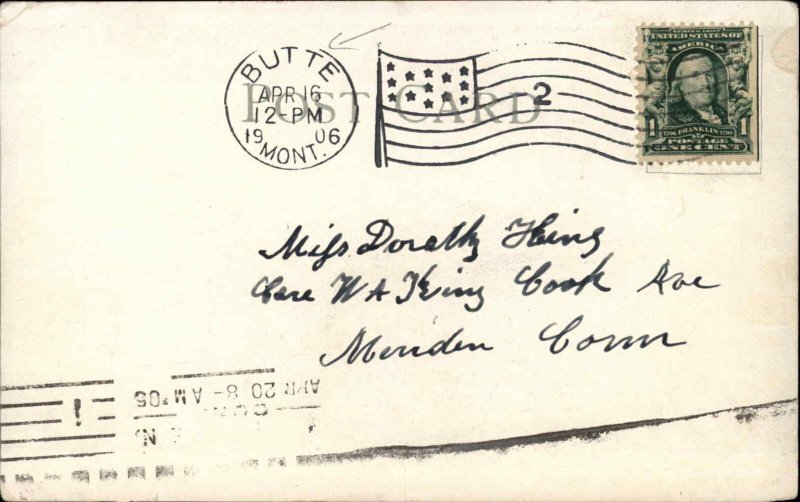 BUTTE
APR 16
12-PM
1906
MONT.
POST CARD
2
SERIES 1902
UNITED STATES OF
AMERICA
1 1
1706 FRANKLIN 1790
POSTAGE
ONE CENT
Miss Dorothy King
Care W A King Cook Ave
Meriden Conn
APR 20 8-AM '06